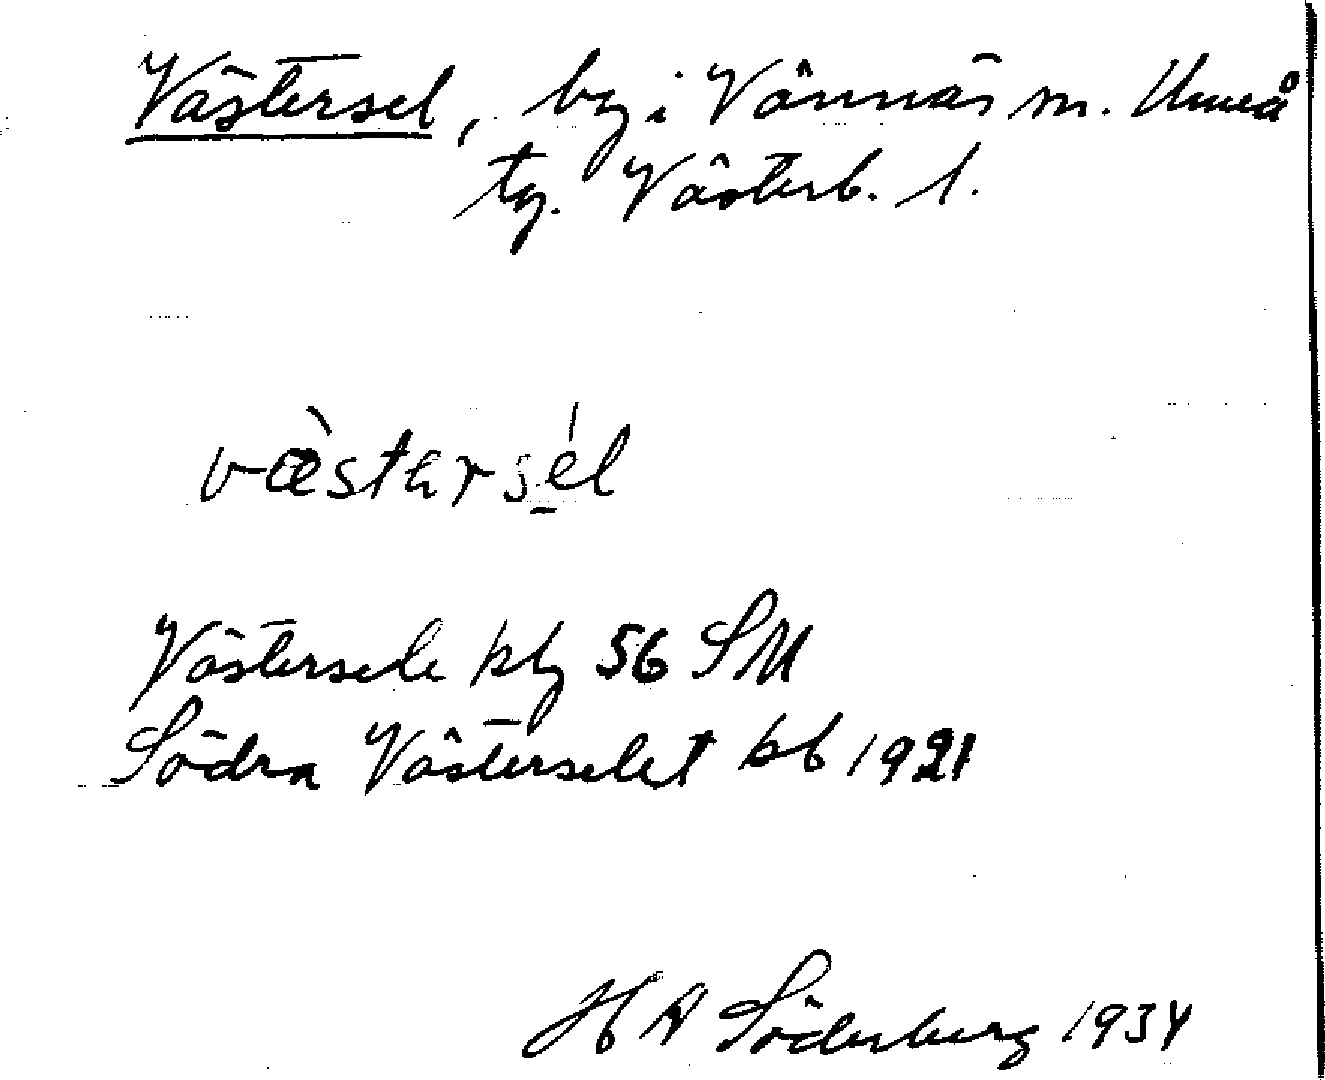 Västersel, by i Vännäs sn. Umeå
tg. Västerb. l.
væ̀starsél
Västersele kbg 56 SM
Södra Västerselet kb 1921
H A Söderberg 1934